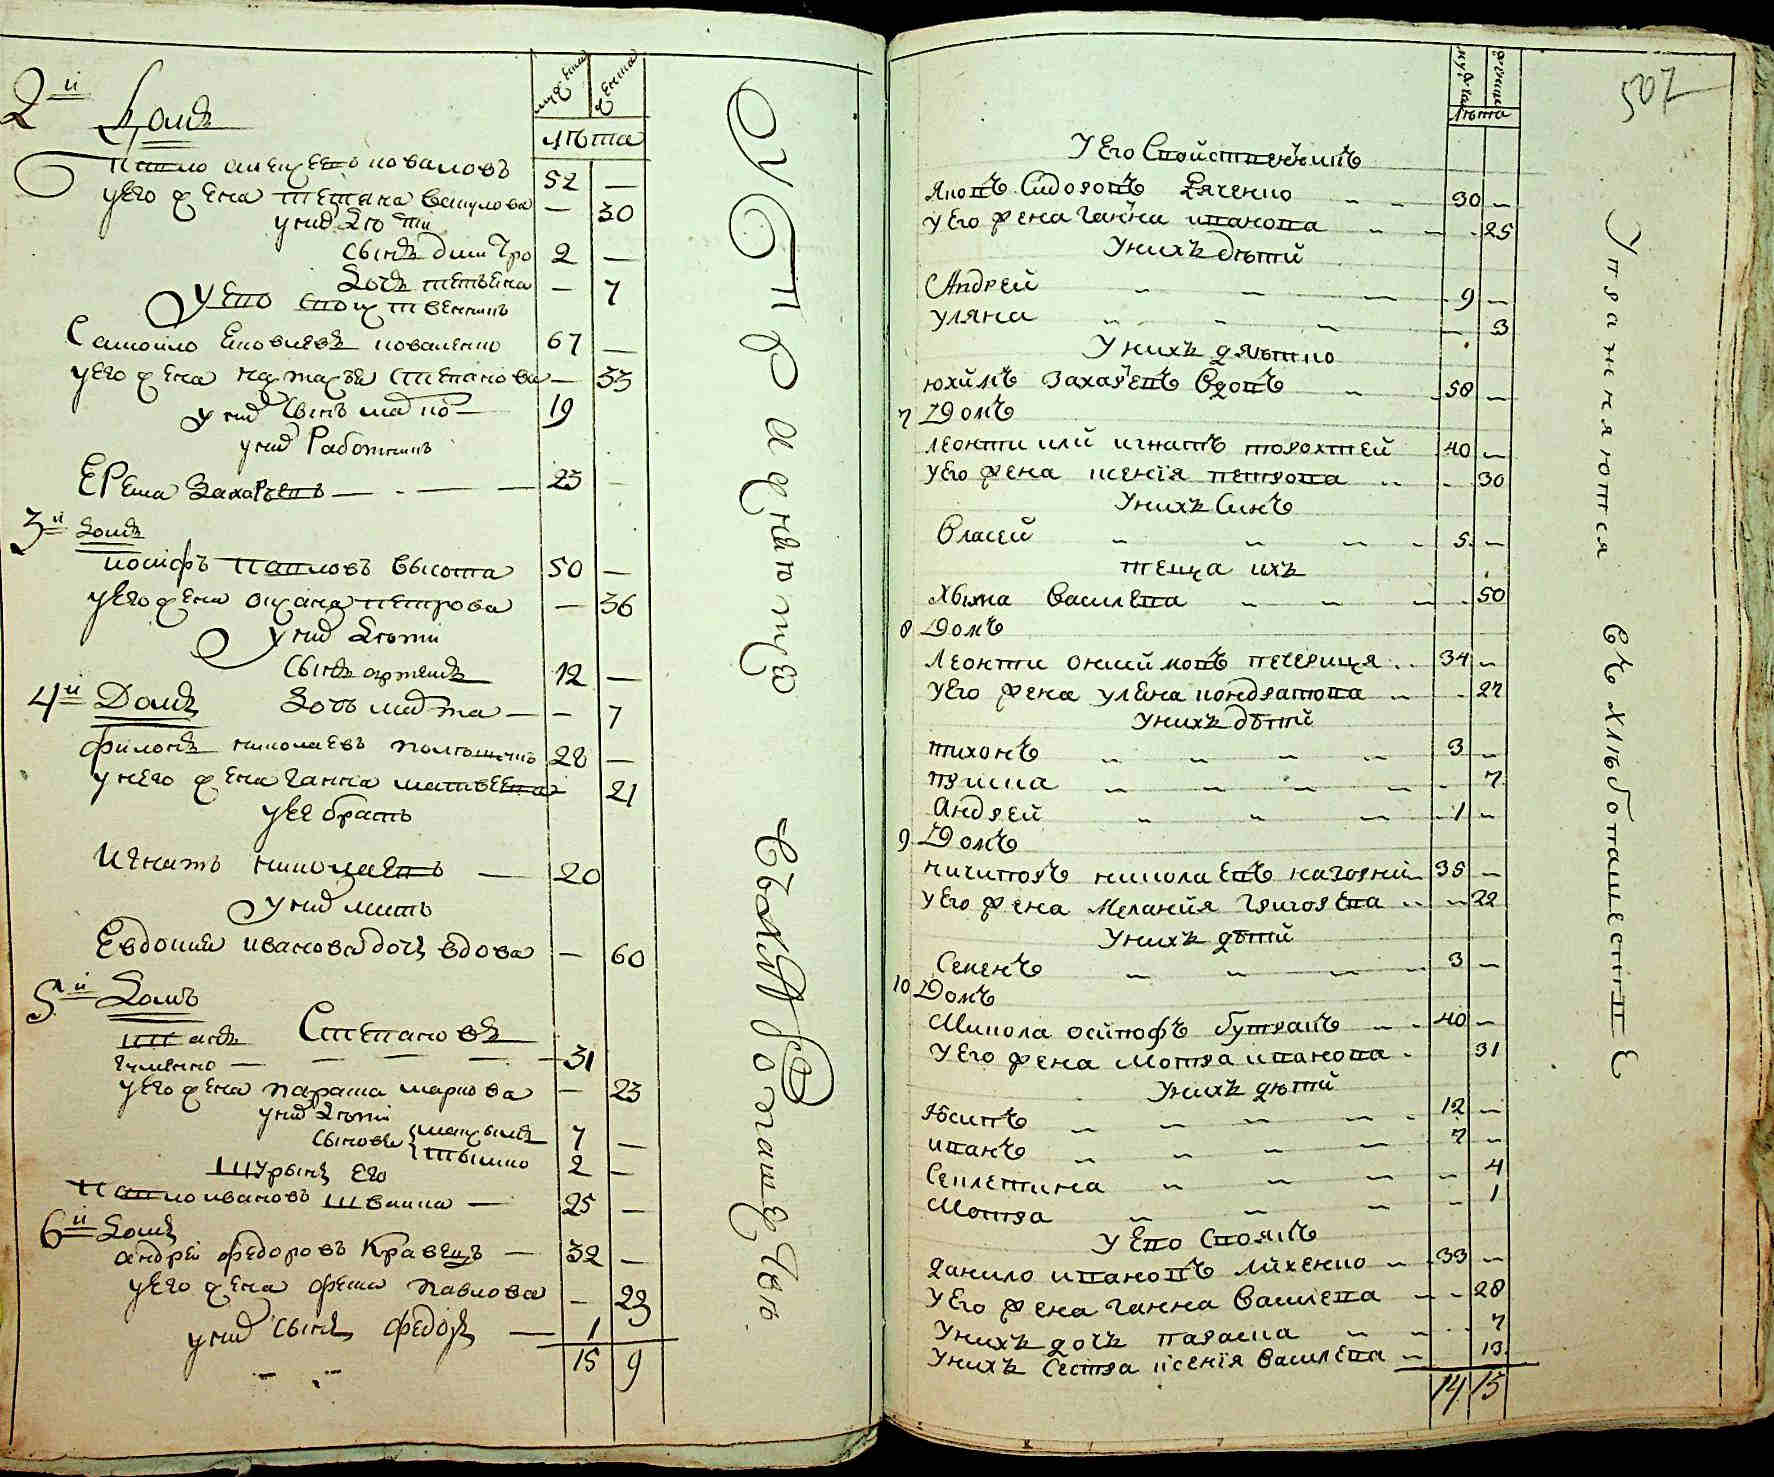 мужеска женска
лѣта
2й Домъ
Павло Алексеевъ Коваловъ 52 —
у его жена Тетяна Вакулова — 30
у нихъ дѣти
сынъ Димитро 2 —
дочь Татьяна — 7
у его свойственникъ
Самойло Яковлевъ Коваленко 67 —
у его жена Наталья Степанова — 33
у нихъ сынъ 19
у нихъ работникъ
Ерема Захарьевъ — 23 —
3й Домъ
Иосифъ Павловъ Высота 50 —
у его жена Оксана Петрова — 36
у нихъ дѣти
сынъ Артемъ 12 —
дочь — — 7
4й Домъ
Филонъ Николаевъ 28 —
у него жена Ганна Матвеева 21
у ее братъ
Игнатъ Николаевъ — 20
у нихъ мать
Евдокия Иванова дочь вдова — 60
5й Домъ
Иванъ Степановъ
— — — — 31
у его жена Параска Маркова — 23
у нихъ дѣти
сыновья 7 —
2 —
шуринъ его
Павло Ивановъ Швайка — 25 —
6й Домъ
Андрей Федоровъ Кравецъ — 32 —
у его жена Феня Павлова — 23
у нихъ сынъ Федоръ — 1
15 9
Упражнюютця
въ хлѣбопашествѣ
507
мужска женска
лѣта
У его свойственникъ
Яковъ Сидоровъ Дяченко 30 —
у его жена Ганна Иванова 25
У нихъ дѣти
Андрей 9 —
Уляна — 3
У нихъ дятко
Юхимъ Захаревъ вдовъ 58 —
7 Домъ
Леонти или Игнатъ Торохтей 40 —
у его жена Ксенія Петрова 30
У нихъ синъ
Власей 5 —
теща ихъ
Хвима Василева 50
8 Домъ
Леонти Онисимовъ Печериця 34 —
у его жена Уляна Кондратова 27
У нихъ дѣти
Тихонъ 3 —
Приска 7
Андрей 1 —
9 Домъ
Ничипоръ Николаевъ Нагорний 35 —
у его жена Мелания Григорева 22
У нихъ дѣти
Семенъ 3 —
10 Домъ
Микола Осиповъ Бутракъ 40 —
у его жена Мотра Иванова 31
У нихъ дѣти
Юсипъ 12 —
Иванъ 7 —
Севлетина 4
Мотра 1
У его своякъ
Данило Ивановъ Лихенко 33 —
у его жена Ганна Василева 28
У нихъ дочь Параска 7
У нихъ сестра Ксенія Василева 13
14 15
Упражняются въ хлѣбопашествѣ